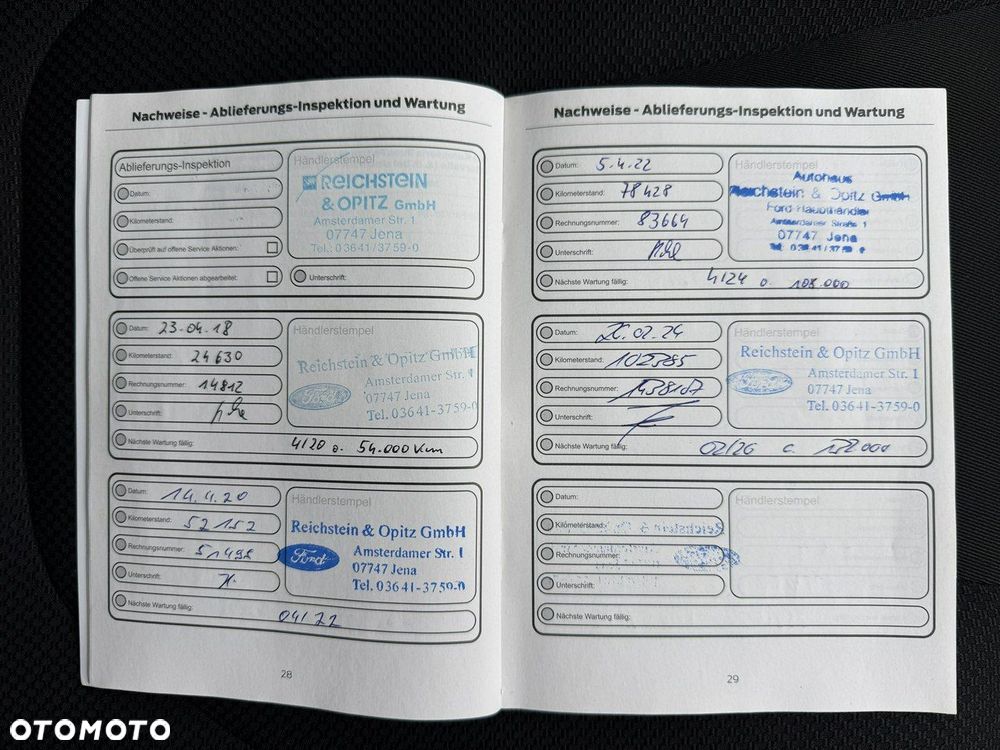 Nachweise - Ablieferungs-Inspektion und Wartung
Ablieferungs-Inspektion
Datum:
Kilometerstand:
Überprüft auf offene Service Aktionen:
Offene Service Aktionen abgearbeitet:
Händlerstempel
REICHSTEIN
& OPITZ GmbH
Amsterdamer Str. 1
07747 Jena
Tel.: 03641/3759-0
Unterschrift:
Datum: 23.04.18
Kilometerstand: 24630
Rechnungsnummer: 14812
Unterschrift:
Händlerstempel
Reichstein & Opitz GmbH
Ford
Amsterdamer Str. 1
07747 Jena
Tel. 03641-3759-0
Nächste Wartung fällig: 4/20 o. 54.000 Km
Datum: 14.4.20
Kilometerstand: 52152
Rechnungsnummer: 51495
Unterschrift:
Händlerstempel
Reichstein & Opitz GmbH
Ford
Amsterdamer Str. 1
07747 Jena
Tel. 03641-3759-0
Nächste Wartung fällig: 04/22
28
Nachweise - Ablieferungs-Inspektion und Wartung
Datum: 5.4.22
Kilometerstand: 78428
Rechnungsnummer: 83664
Unterschrift:
Händlerstempel
Autohaus
Reichstein & Opitz GmbH
Ford Haupthändler
Amsterdamer Straße 1
07747 Jena
Tel. 03641/3759-0
Nächste Wartung fällig: 4/24 o. 108.000
Datum: 20.02.24
Kilometerstand: 102385
Rechnungsnummer: 1438107
Unterschrift:
Händlerstempel
Reichstein & Opitz GmbH
Ford
Amsterdamer Str. 1
07747 Jena
Tel. 03641-3759-0
Nächste Wartung fällig: 02/26 o. 132000
Datum:
Kilometerstand:
Rechnungsnummer:
Unterschrift:
Händlerstempel
Nächste Wartung fällig:
29
OTOMOTO